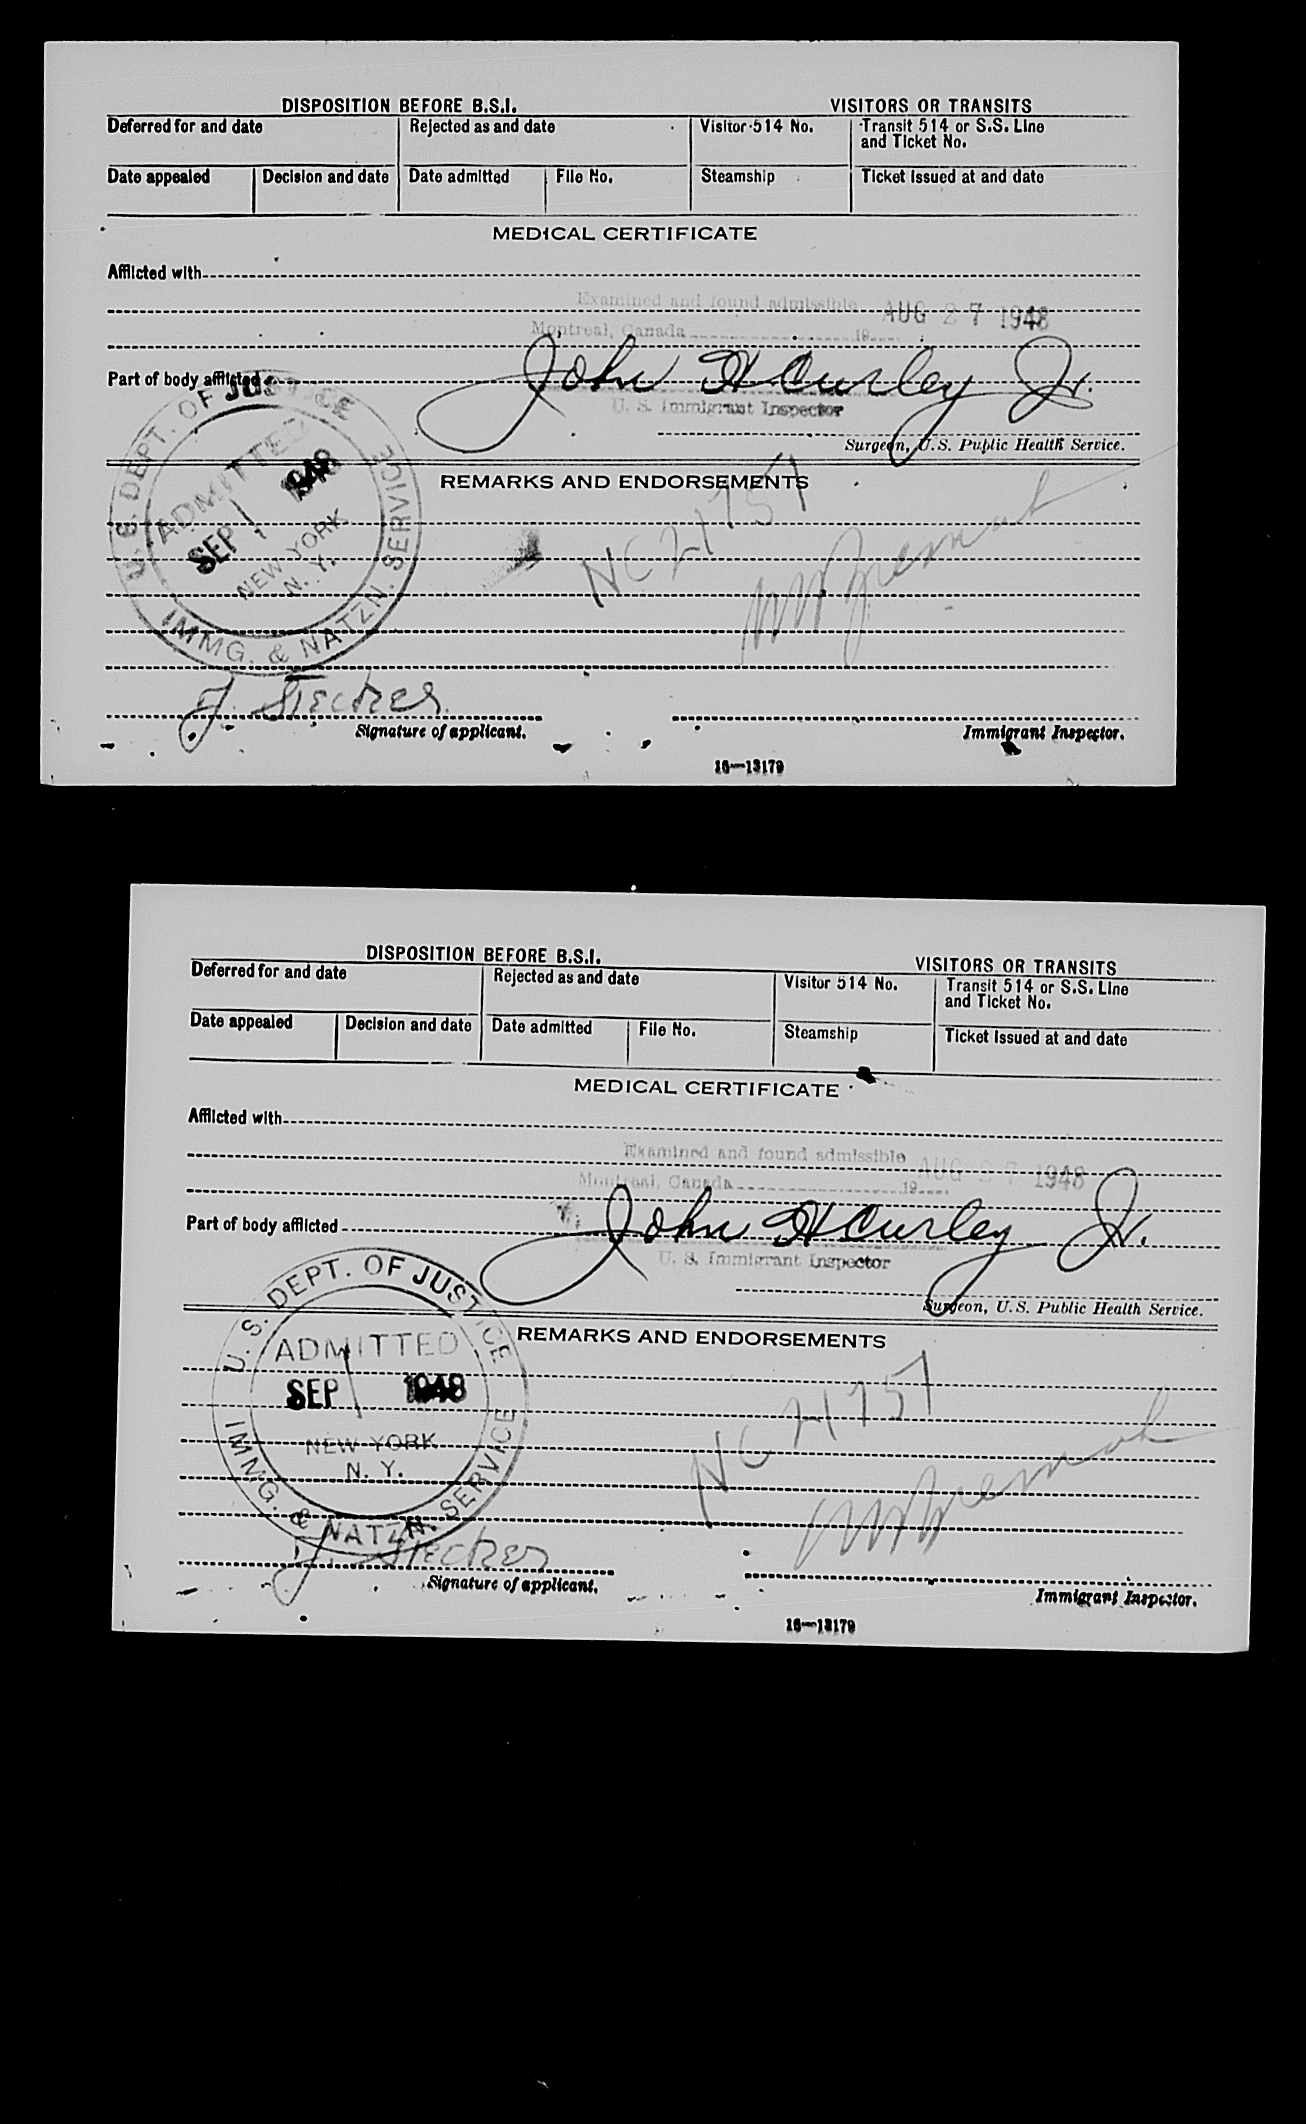 DISPOSITION BEFORE B.S.I. VISITORS OR TRANSITS
Deferred for and date Rejected as and date Visitor 514 No. Transit 514 or S.S. Line
and Ticket No.
Date appealed Decision and date Date admitted File No. Steamship Ticket issued at and date
MEDICAL CERTIFICATE
Afflicted with
Examined and found admissible AUG 27 1948
Montreal, Canada 19
Part of body afflicted John H Curley Jr.
U. S. Immigrant Inspector
Surgeon, U.S. Public Health Service.
REMARKS AND ENDORSEMENTS
U. S. DEPT. OF JUSTICE
ADMITTED
SEP 1 1948
NEW YORK
N. Y.
IMMG. & NATZN. SERVICE
NC 21757
J. Stecher
Signature of applicant. Immigrant Inspector.
16—13179
DISPOSITION BEFORE B.S.I. VISITORS OR TRANSITS
Deferred for and date Rejected as and date Visitor 514 No. Transit 514 or S.S. Line
and Ticket No.
Date appealed Decision and date Date admitted File No. Steamship Ticket issued at and date
MEDICAL CERTIFICATE
Afflicted with
Examined and found admissible AUG 27 1948
Montreal, Canada 19
Part of body afflicted John H Curley Jr.
U. S. Immigrant Inspector
Surgeon, U.S. Public Health Service.
REMARKS AND ENDORSEMENTS
U. S. DEPT. OF JUSTICE
ADMITTED
SEP 1 1948
NEW YORK
N. Y.
IMMG. & NATZN. SERVICE
NC 21757
J. Stecher
Signature of applicant. Immigrant Inspector.
16—13179